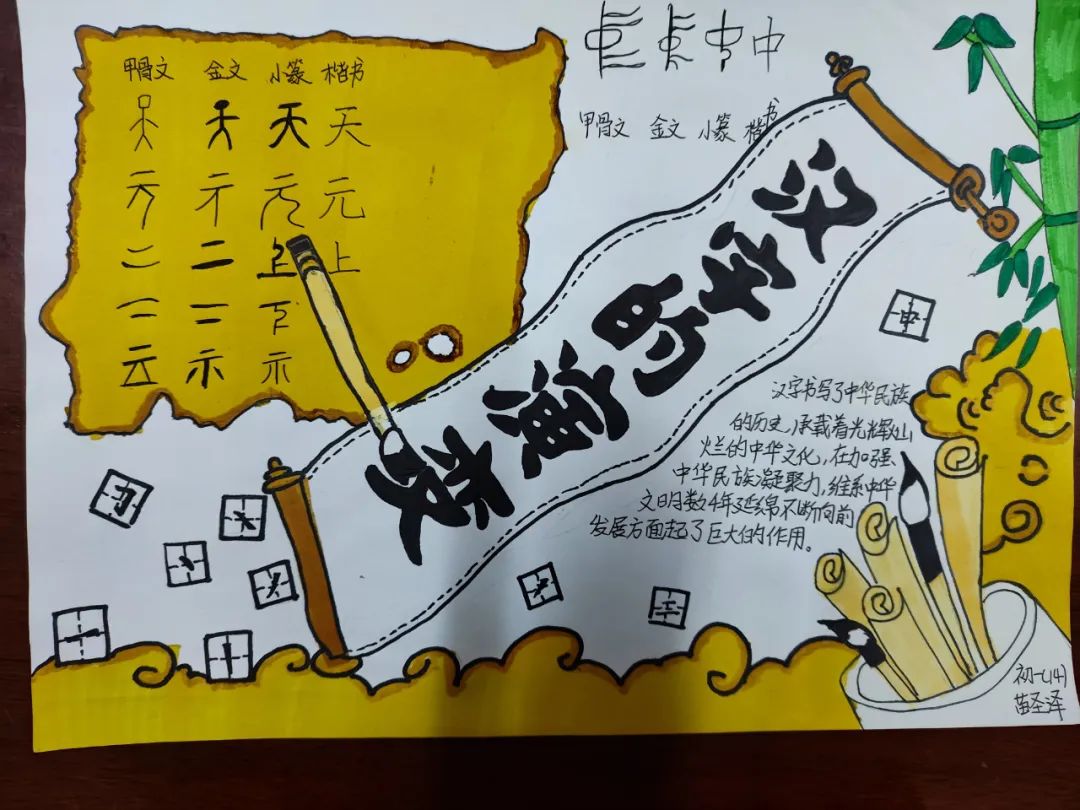 甲骨文 金文 小篆 楷书
天
元
上
中
甲骨文 金文 小篆 楷书
汉字的演变
汉字书写了中华民族
的历史,承载着光辉灿
烂的中华文化,在加强
中华民族凝聚力,维系中华
文明数千年延绵不断向前
发展方面起了巨大的作用。
初一(4)
苗圣泽